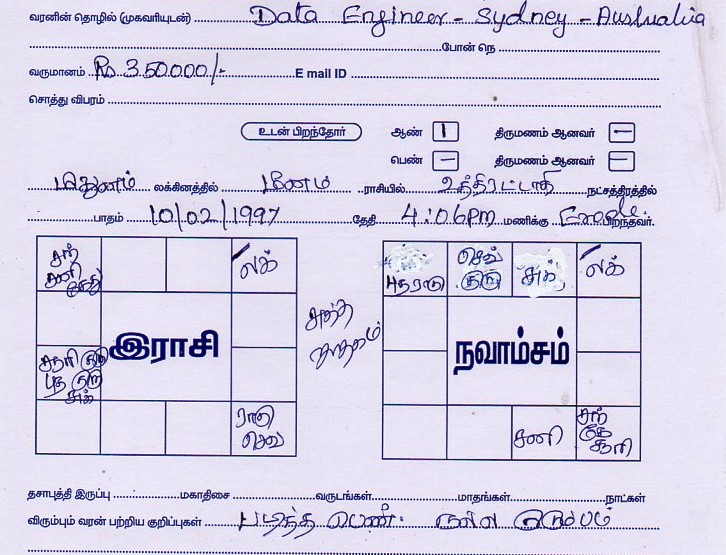 வரனின் தொழில் (முகவரியுடன்) Data Engineer - Sydney - Australia
போன் நெ
வருமானம் Rs 350000/- E mail ID
சொத்து விபரம்
உடன் பிறந்தோர் ஆண் 1 திருமணம் ஆனவர் —
பெண் — திருமணம் ஆனவர் —
மிதுனம் லக்கினத்தில் மீனம் ராசியில் உத்திரட்டாதி நட்சத்திரத்தில்
பாதம் 10/02/1997 தேதி 4:06PM மணிக்கு Erode பிறந்தவர்.
சந் சனி கேது லக் புத ராகு செவ் குரு சுக் லக்
இராசி சுத்த ஜாதகம் நவாம்சம்
சூரி குரு புத சுக்
ராகு செவ் சனி சந் கேது சூரி
தசாபுத்தி இருப்பு மகாதிசை வருடங்கள் மாதங்கள் நாட்கள்
விரும்பும் வரன் பற்றிய குறிப்புகள் படித்த பெண். நல்ல குடும்பம்